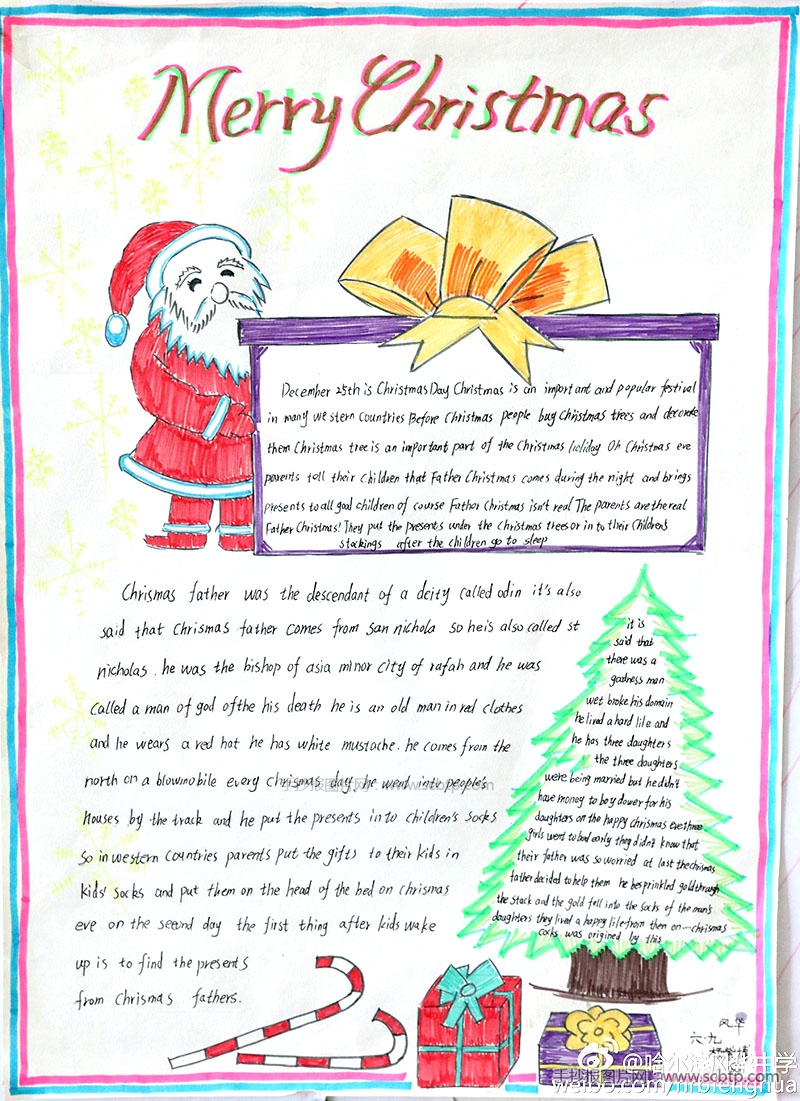 Merry Christmas
December 25th is Christmas Day Christmas is an important and popular festival
in many western countries Before Christmas people buy christmas trees and decorate
them Christmas tree is an important part of the Christmas holiday Oh Christmas eve
parents tell their children that Father Christmas comes during the night and brings
presents to all good children of course Father Christmas isn't real The parents are the real
Father Christmas! They put the presents under the Christmas trees or in to their children's
stockings after the children go to sleep
Chrismas father was the descendant of a deity called odin it's also
said that Chrismas father comes from san nichola so he is also called st
nicholas. he was the bishop of asia minor city of rafah and he was
called a man of god of the his death he is an old man in red clothes
and he wears a red hat he has white mustache. he comes from the
north on a blowmobile every chrismas day he went into people's
houses by the track and he put the presents in to children's socks
So in western countries parents put the gifts to their kids in
kids' socks and put them on the head of the bed on chrismas
eve on the second day the first thing after kids wake
up is to find the presents
from chrismas fathers.
it is
said that
there was a
gadness man
wet broke his domain
he lived a hard life and
he has three daughters
the three daughters
were being married but he didn't
have money to boy dower for his
daughters on the happy chrismas eve three
girls went to bad early they didn't know that
their father was so worried at last the chrismas
father decided to help them he besprinkled gold through
the stack and the gold fell into the socks of the man's
daughters they lived a happy life from then on—chrismas
cocks was origined by this
风华
六、九
手抄报图片网 www.scotp.com
@哈尔滨风华中学
手抄报图片网 www.scbtp.com
weibo.com/hrbfenghua